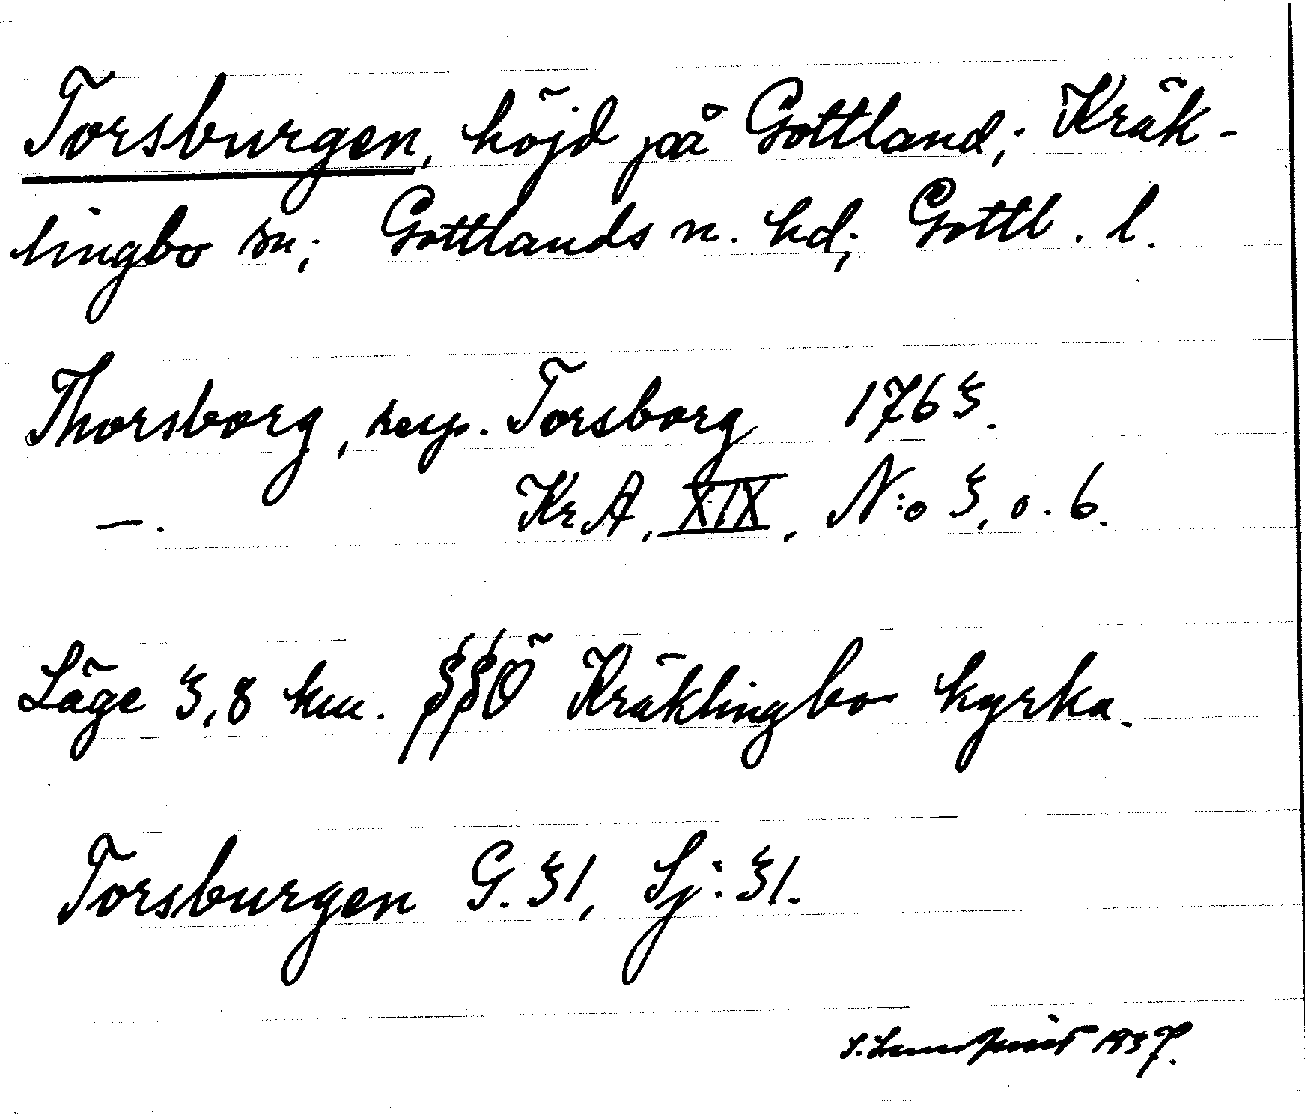 Torsburgen, höjd på Gottland; Kräk-
lingbo sn; Gottlands n. hd; Gottl. l.
Thorsborg, resp. Torsborg 1763.
—. KrA, XIX, N:o 3, o. 6.
Läge 3,8 km. SSÖ Kräklingbo kyrka.
Torsburgen G. 31, Sj: 31.
1937.